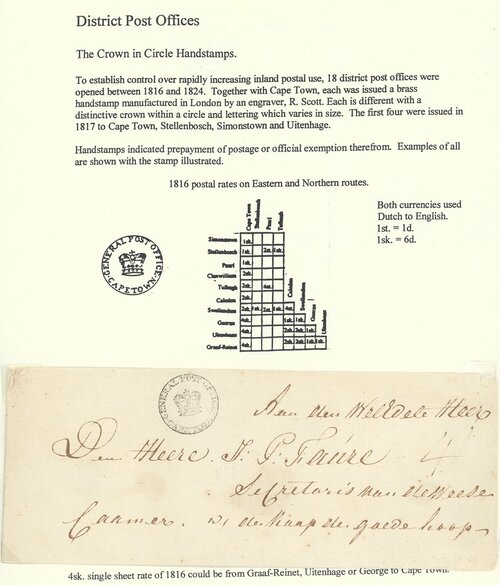 District Post Offices
The Crown in Circle Handstamps.
To establish control over rapidly increasing inland postal use, 18 district post offices were
opened between 1816 and 1824. Together with Cape Town, each was issued a brass
handstamp manufactured in London by an engraver, R. Scott. Each is different with a
distinctive crown within a circle and lettering which varies in size. The first four were issued in
1817 to Cape Town, Stellenbosch, Simonstown and Uitenhage.
Handstamps indicated prepayment of postage or official exemption therefrom. Examples of all
are shown with the stamp illustrated.
1816 postal rates on Eastern and Northern routes.
Both currencies used
Dutch to English.
1st. = 1d.
1sk. = 6d.
GENERAL POST OFFICE
CAPE TOWN
Cape Town
Stellenbosch
Paarl
Tulbagh
Simonstown 1sk.
Stellenbosch 1sk. 2st. 1sk.
Paarl 1sk.
Clanwilliam 2sk.
Tulbagh 2sk. 4st.
Caledon 2sk.
Caledon
Swellendam 2sk. 1sk. 2sk. 4st.
Swellendam
George 4sk. 1sk. 1sk.
George
Uitenhage 4sk. 2sk. 2sk. 1sk.
Uitenhage
Graaf-Reinet 4sk. 2sk. 2sk. 1sk. 1sk.
GENERAL POST OFFICE
CAPE TOWN
Aan den Weledele Heer
Den Heere J. P. Faure 4
Secretaris van de Weese
Caamer. de Kaap de goede hoop
4sk. single sheet rate of 1816 could be from Graaf-Reinet, Uitenhage or George to Cape Town.